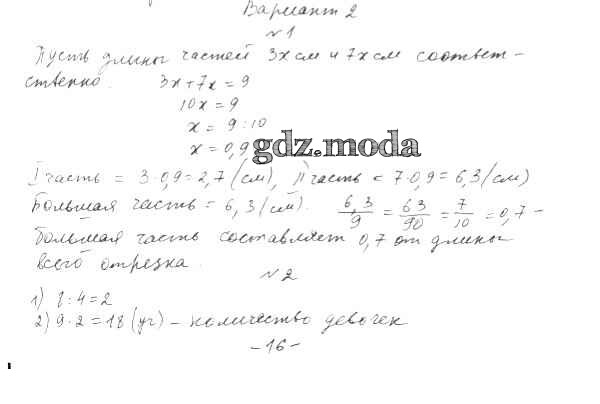 Вариант 2
№ 1
Пусть длины частей 3x см и 7x см соответ-
ственно. 3x + 7x = 9
10x = 9
x = 9 : 10
x = 0,9
gdz.moda
I часть = 3·0,9 = 2,7 (см), II часть = 7·0,9 = 6,3 (см)
Большая часть = 6,3 (см). 6,3/9 = 63/90 = 7/10 = 0,7 –
большая часть составляет 0,7 от длины
всего отрезка.
№ 2
1) 8 : 4 = 2
2) 9·2 = 18 (уч) – количество девочек
– 16 –